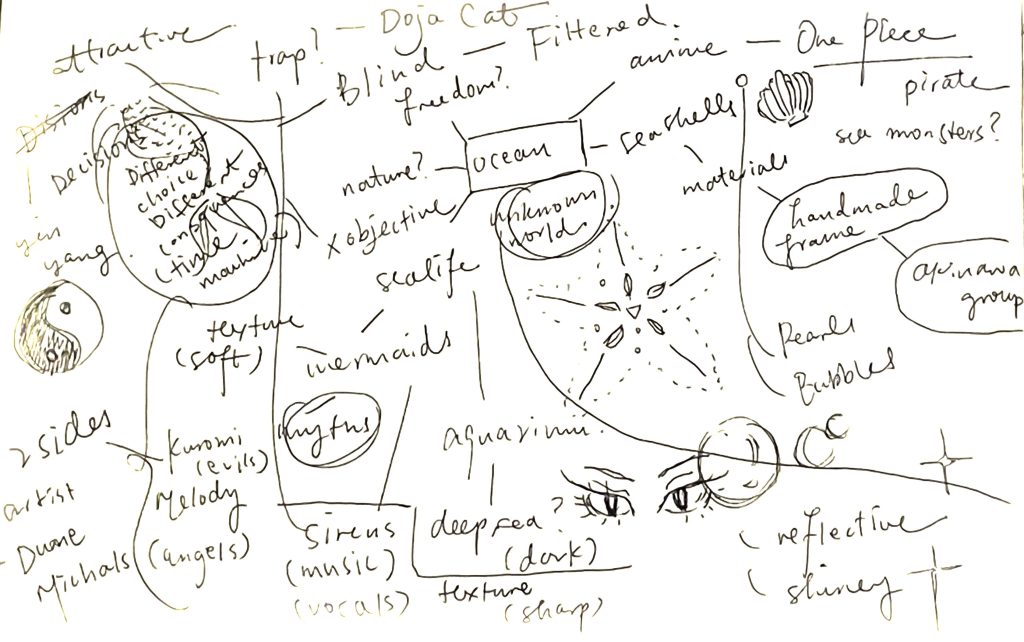 attractive
trap? — Doja Cat
Blind — Filtered.
freedom?
anime — One Piece
pirate
sea monsters?
Decision
Different
choice
Different
(time.
yin
yang
nature?
ocean
seashells
materials
handmade
frame
okinawa
group
x objective
unknown
world.
sealife
texture
(soft)
mermaids
myths
aquarium.
Pearls
Bubbles
2 sides
artist
- Duane
Michals
Kuromi
(evils)
Melody
(angels)
Sirens
(music)
(vocals)
deepsea?
(dark)
texture
(sharp)
( reflective
( shiney